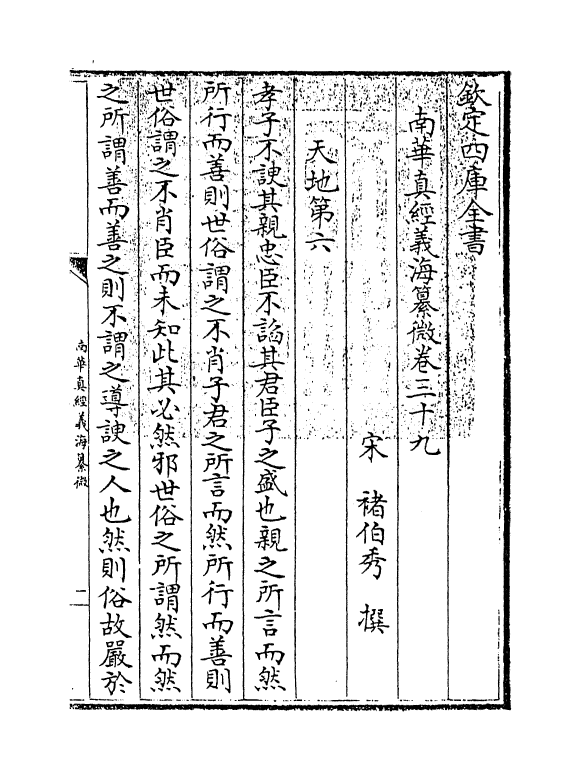 欽定四庫全書
南華真經義海纂微卷三十九
宋　褚伯秀　撰
天地第六
孝子不諛其親忠臣不諂其君臣子之盛也親之所言而然
所行而善則世俗謂之不肖子君之所言而然所行而善則
世俗謂之不肖臣而未知此其必然邪世俗之所謂然而然
之所謂善而善之則不謂之導諛之人也然則俗故嚴於
南華真經義海纂微
二